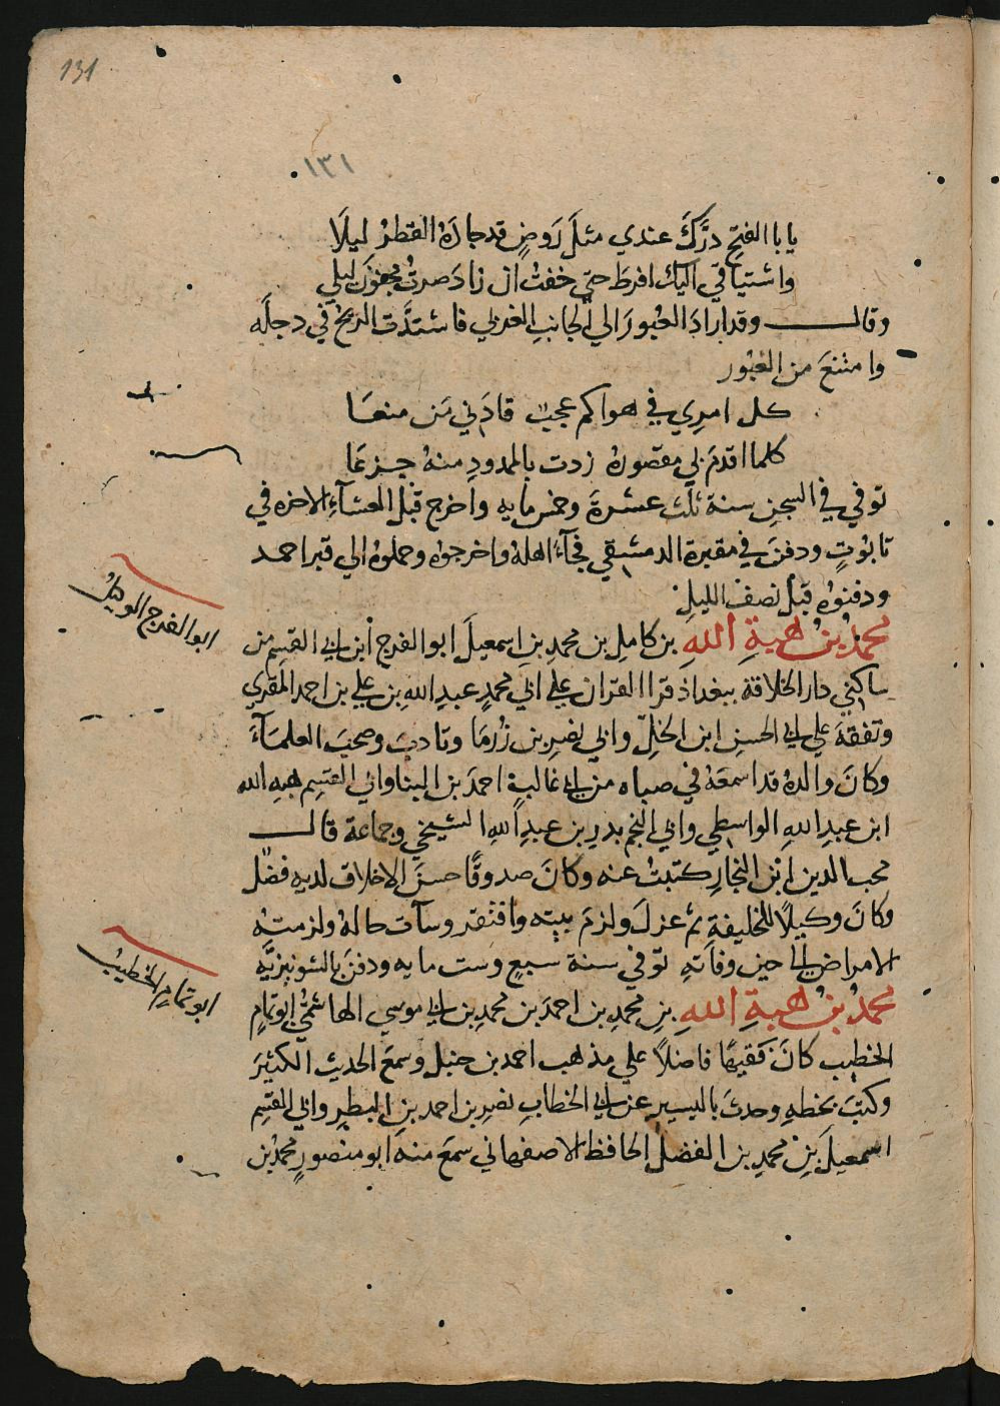 131
١٣١
يابا الفتح درَّكَ عندي مثلَ رَوضٍ قد جادَهُ القطرُ ليلَا
واشتياقي اليك افرطَ حتي خفتُ ان زادَ صرتُ مجنونَ ليلي
وقال وقد اراد العُبورَ الي الجانبِ الغربي فاشتدَّت الريحُ في دجلَه
وامتنعَ من العُبور
كل امرِي في هواكم عجبٌ قادَني مَن منعَا
كلما اقدمَ بي مقصورهُ زدت بالممدودِ منهُ جزعَا
توفي في السجنِ سنة ثلث عشرةَ وخمس مايه واخرج قبلَ العشآءِ الاخره في
تابوتٍ ودفنَ في مقبرة الدمشقي فجآءَ اهلهُ واخرجوهُ وحملوهُ الي قبر احمد
ودفنوهُ قبلَ نصفِ الليلِ
محمدُ بنُ هبةِ اللهِ بن كاملِ بن محمدِ بنِ اسمعيلَ ابو الفرجِ ابن ابي القسِم من
ساكني دار الخلافة ببغداذ قرا القران علي ابي محمدٍ عبدِ اللهِ بن علي بن احمد المقري
وتفقهَ علي ابي الحسنِ ابن الخلِّ وابي نصرِ بن زُرمَا وتادبَ وصحبَ العلمَآءَ
وكانَ والدهُ قد اسمعَهُ في صباه من ابي غالبٍ احمدَ بن البنا وابي القسِم هبه الله
ابن عبدِ اللهِ الواسطي وابي النجم بدرِ بن عبدِ اللهِ الشيخي وجماعة قال
محب الدين ابن النجارِ كتبتُ عنه وكانَ صدوقًا حسنَ الاخلاق لديهِ فضلٌ
وكانَ وكيلًا للخليفةِ ثم عزلَ ولزمَ بيته وافتقر وسآت حالهُ ولزمتهُ
الامراض الي حينِ وفاتهِ توفي سنة سبعٍ وست مايه ودفنَ بالشونيزيَّه
محمدُ بنُ هبةِ اللهِ بنِ محمدِ بن احمدَ بن محمدِ بن ابي موسي الهاشميُّ ابو تمامٍ
الخطيب كانَ فقيهًا فاضلًا علي مذهب احمد بن حنبل وسمعَ الحديث الكثيرَ
وكتبَ بخطهِ وحدثَ باليسيرِ عن ابي الخطابِ نصرِ بن احمد بنِ البطرِ وابي القسِم
اسمعيلَ بنِ محمدِ بن الفضلِ الحافظ الاصفهاني سمعَ منه ابو منصورٍ محمدُ بن
ابو الفرج الوكيلُ
ابو تمامٍ الخطيبُ